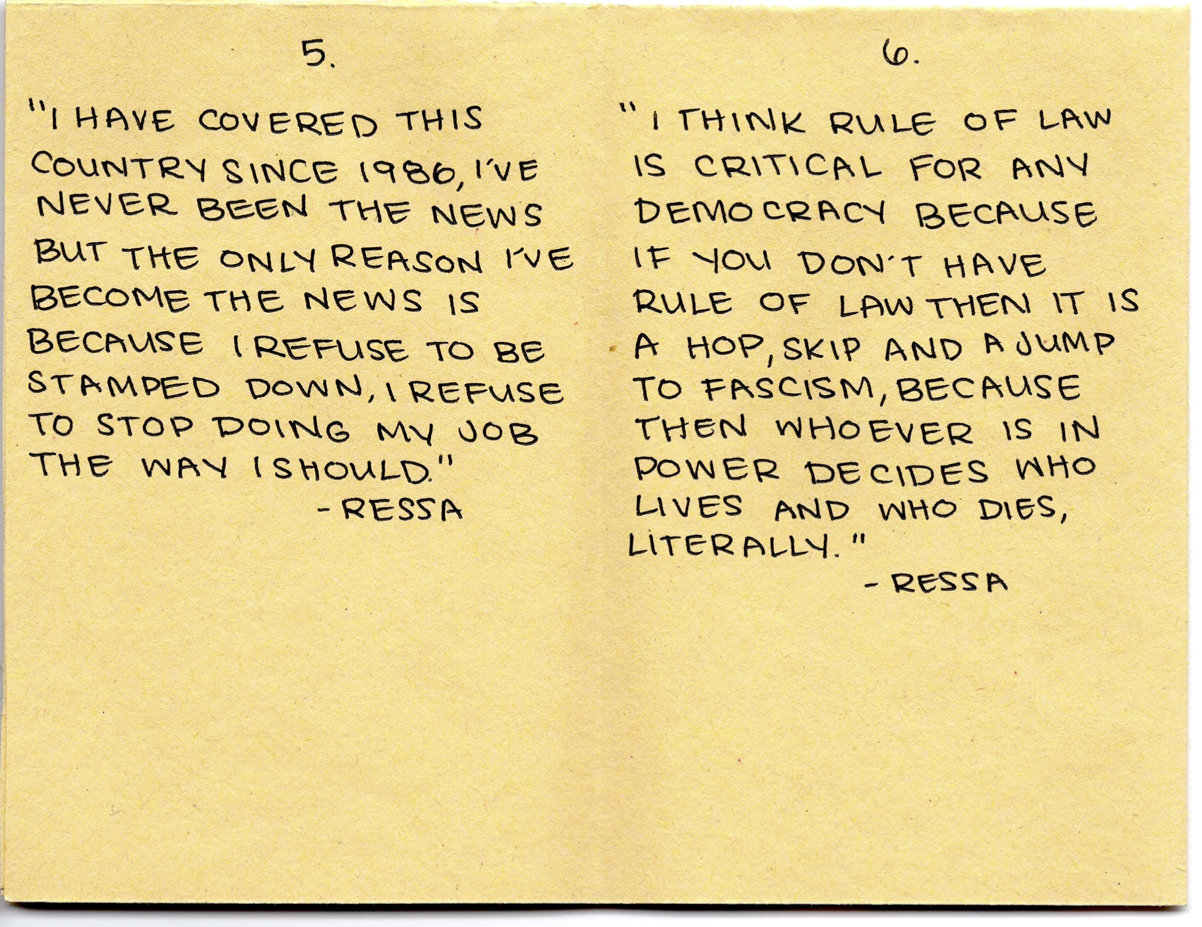 5.
"I HAVE COVERED THIS
COUNTRY SINCE 1986, I'VE
NEVER BEEN THE NEWS
BUT THE ONLY REASON I'VE
BECOME THE NEWS IS
BECAUSE I REFUSE TO BE
STAMPED DOWN, I REFUSE
TO STOP DOING MY JOB
THE WAY I SHOULD."
- RESSA
6.
"I THINK RULE OF LAW
IS CRITICAL FOR ANY
DEMOCRACY BECAUSE
IF YOU DON'T HAVE
RULE OF LAW THEN IT IS
A HOP, SKIP AND A JUMP
TO FASCISM, BECAUSE
THEN WHOEVER IS IN
POWER DECIDES WHO
LIVES AND WHO DIES,
LITERALLY."
- RESSA